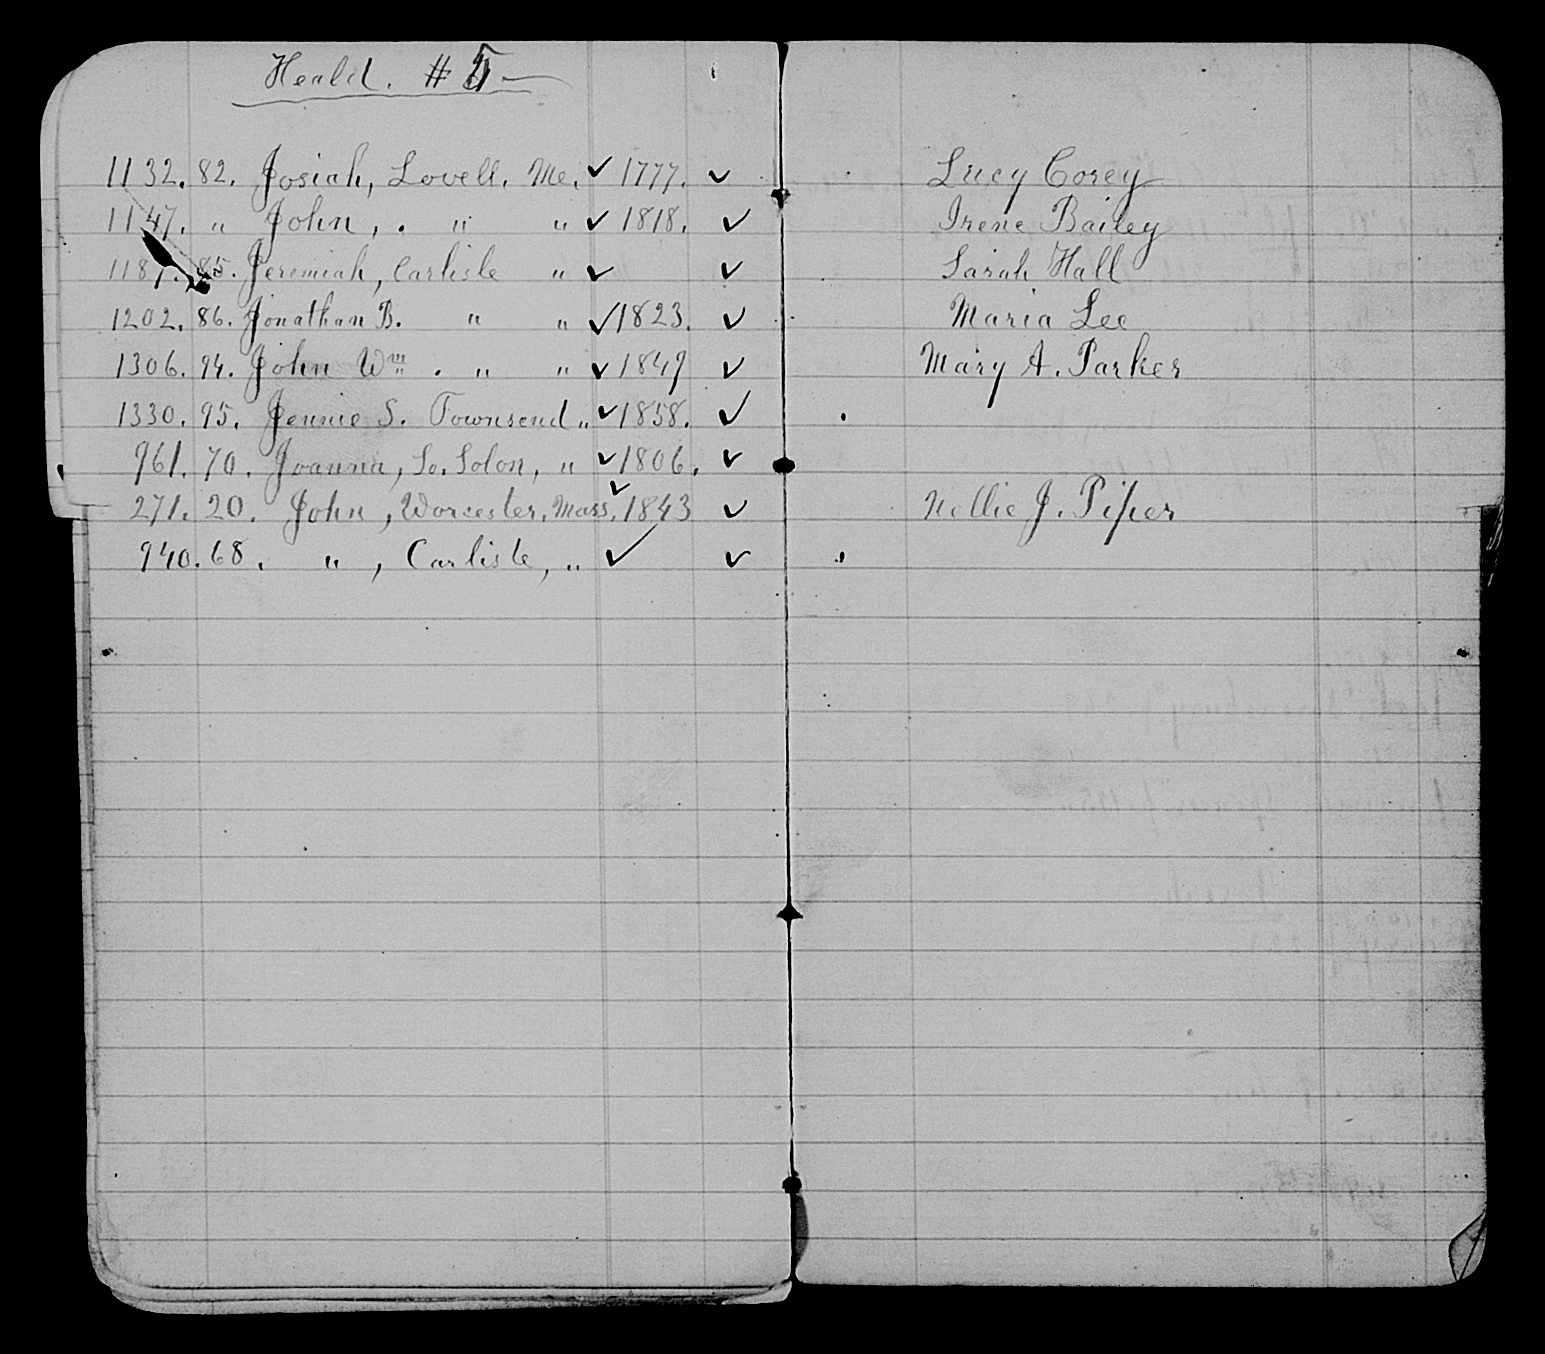 Heald. # 5
1132. 82. Josiah, Lovell. Me. ✓ 1777. ✓ Lucy Corey
1147. " John, . " " ✓ 1818. ✓ Irene Bailey
1187. 85. Jeremiah, Carlisle " ✓ ✓ Sarah Hall
1202. 86. Jonathan B. " " ✓ 1823. ✓ Maria Lee
1306. 94. John Wm . " " ✓ 1849 ✓ Mary A. Parker
1330. 95. Jennie S. Townsend " ✓ 1858. ✓
961. 70. Joanna, So. Solon, " ✓ 1806. ✓
271. 20. John, Worcester, Mass. ✓ 1843 ✓ Nellie J. Piper
940. 68. " , Carlisle, " ✓ ✓